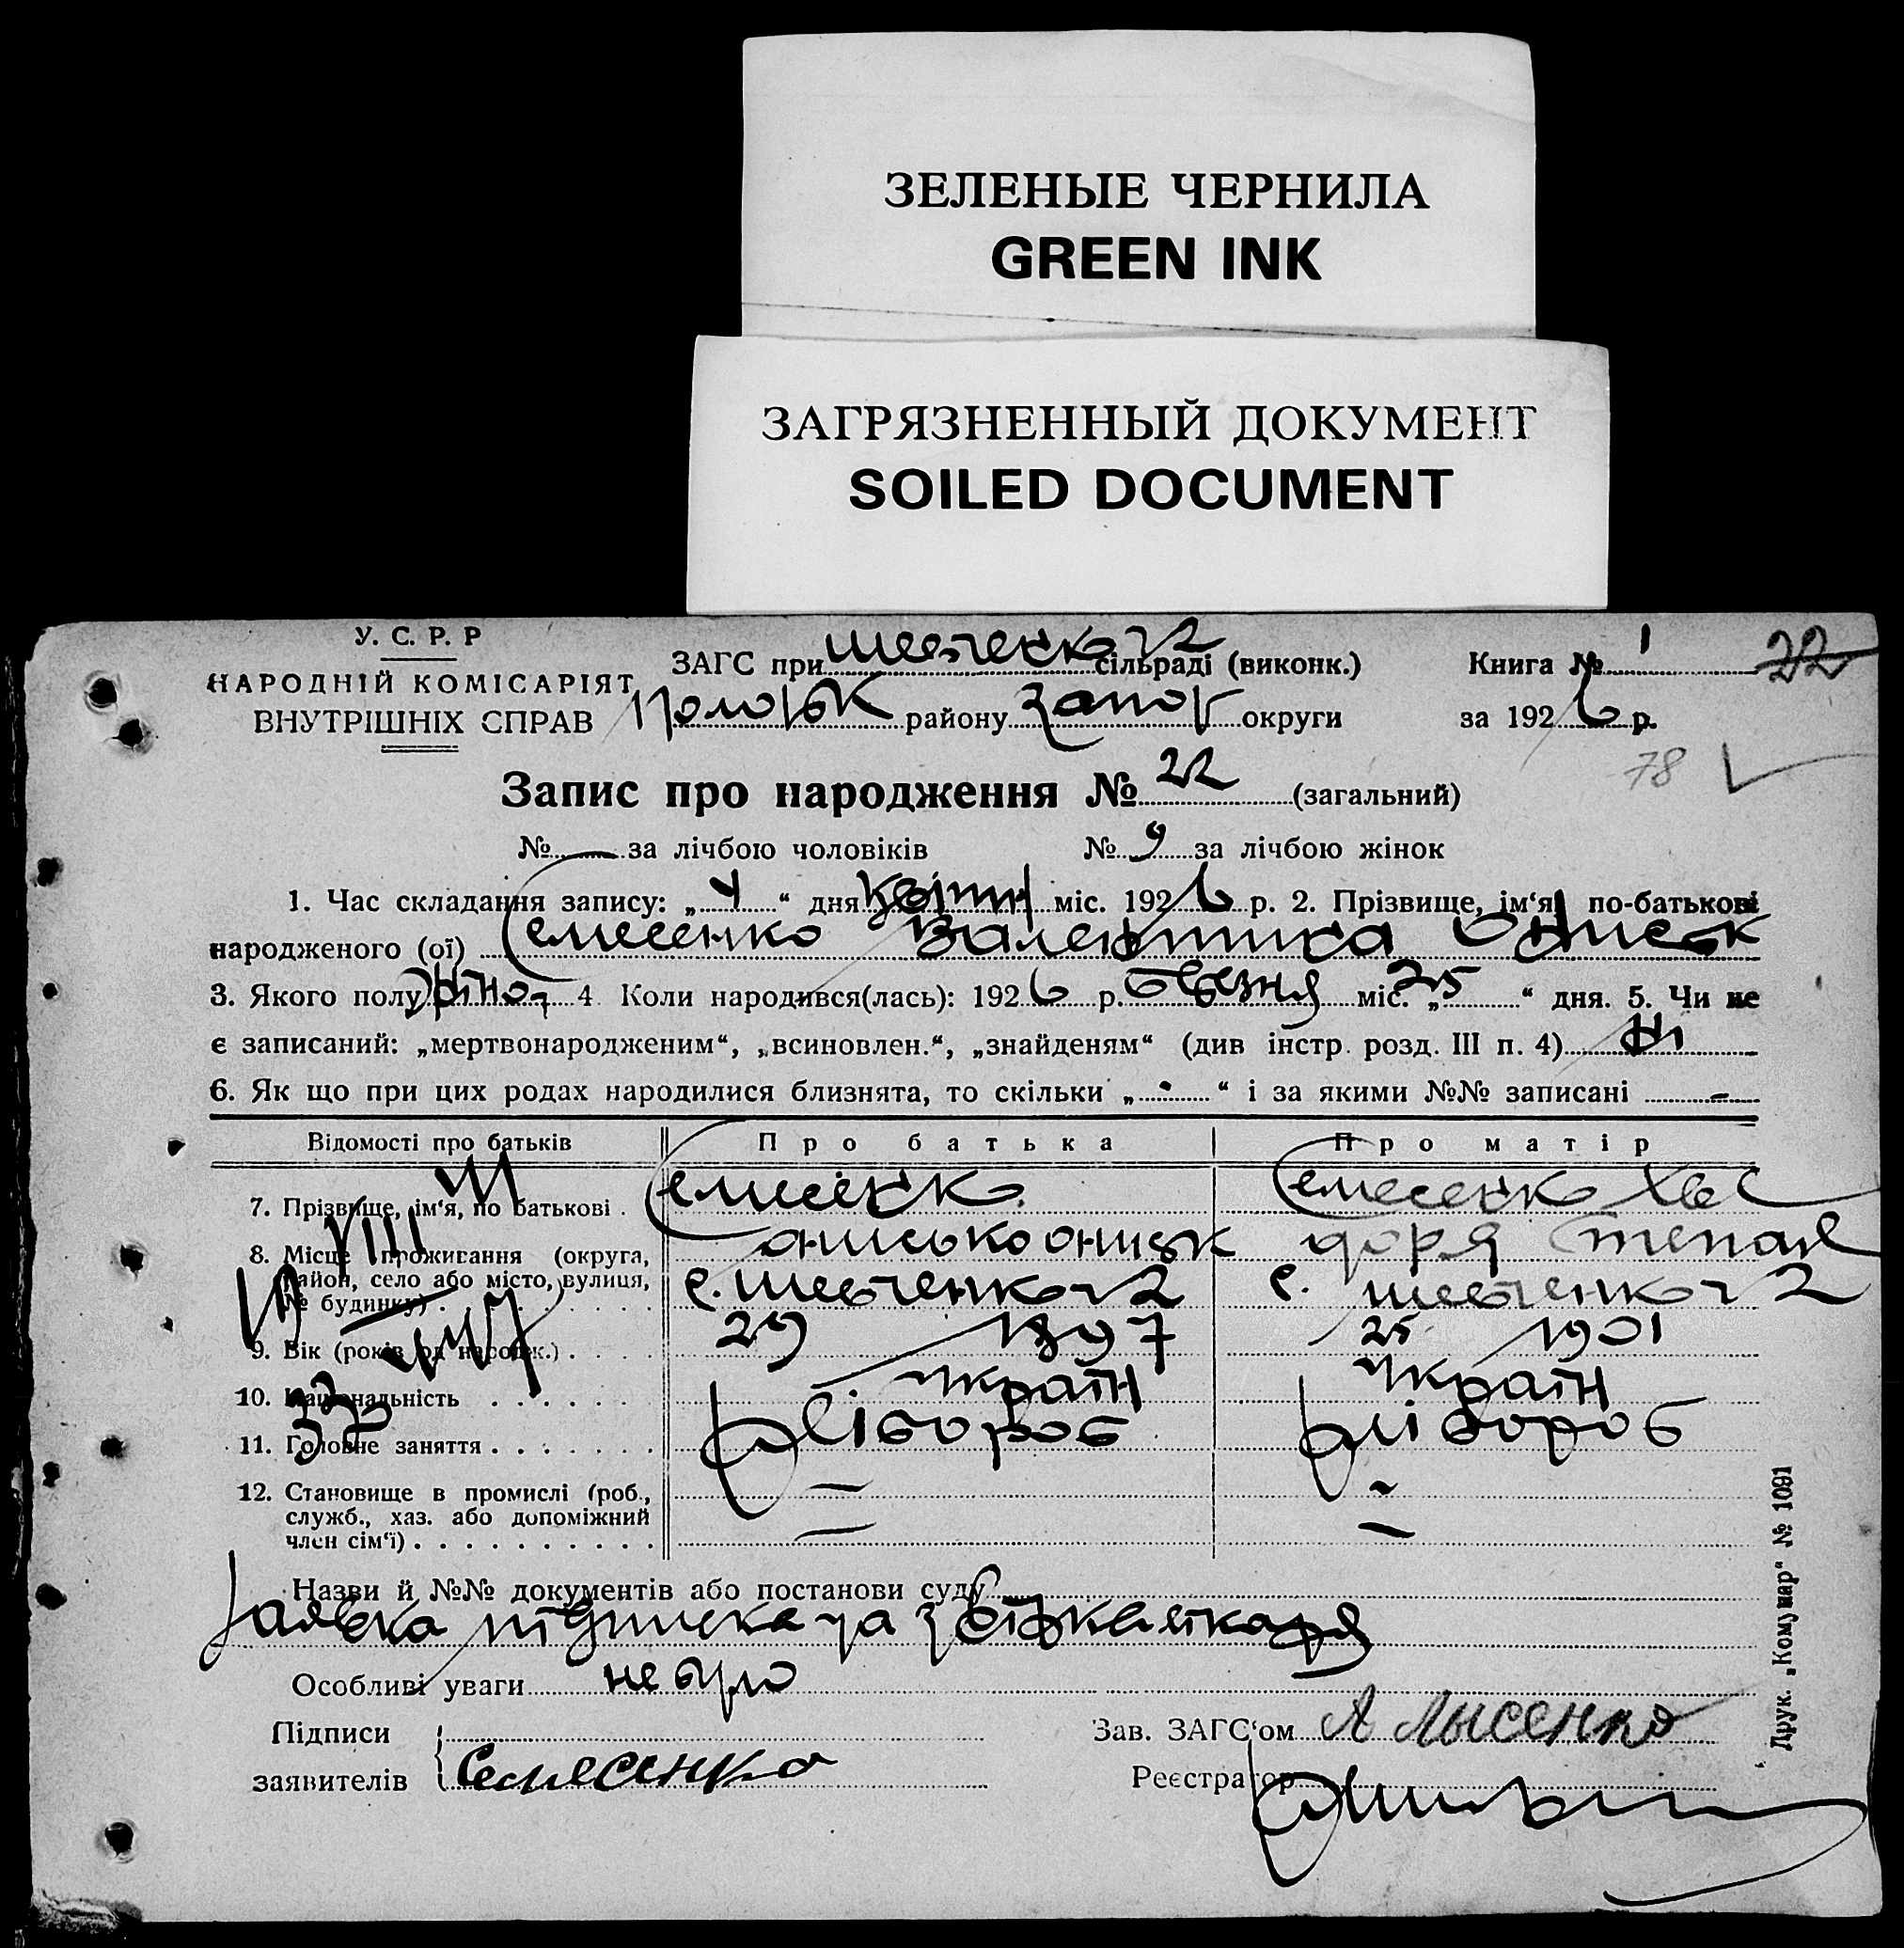 ЗЕЛЕНЫЕ ЧЕРНИЛА
GREEN INK
ЗАГРЯЗНЕННЫЙ ДОКУМЕНТ
SOILED DOCUMENT
У. С. Р. Р
НАРОДНІЙ КОМІСАРІЯТ
ВНУТРІШНІХ СПРАВ
ЗАГС при сільраді (виконк.) Книга № 1 22
району Запор округи за 1926 р.
78
Запис про народження № 22 (загальний)
№ — за лічбою чоловіків № 9 за лічбою жінок
1. Час складання запису: „ 4 “ дня квітн міс. 1926 р. 2. Прізвище, ім‘я, по-батькові
народженого (ої) Семесенко Валентина Ониськ
3. Якого полу жіноч 4 Коли народився(лась): 1926 р. березня міс. „ 25 “ дня. 5. Чи не
є записаний: „мертвонародженим“, „всиновлен.“, „знайденям“ (див інстр. розд. III п. 4) ні
6. Як що при цих родах народилися близнята, то скільки „ - “ і за якими №№ записані -
Відомості про батьків Про батька Про матір
7. Прізвище, ім‘я, по батькові . Семесенко Семесенко Хве
8. Місце проживання (округа, онисько ониськ доря Степан
район, село або місто, вулиця, с. Шевченко с. Шевченко
№ будинку) . . . . . . . . .
9. Вік (років од народж.) . . . . 29 1897 25 1901
10. Національність . . . . . . . україн україн
11. Головне заняття . . . . . . . хлібороб хлібороб
12. Становище в промислі (роб., — -
служб., хаз. або допоміжний
член сім‘ї) . . . . . . . . . . — —
Назви й №№ документів або постанови суду
Заявка підписка та
Особливі уваги не було
Підписи Зав. ЗАГС‘ом А Лысенко
заявителів Семесенко Реєстратор
Друк. „Комунар“ № 1091